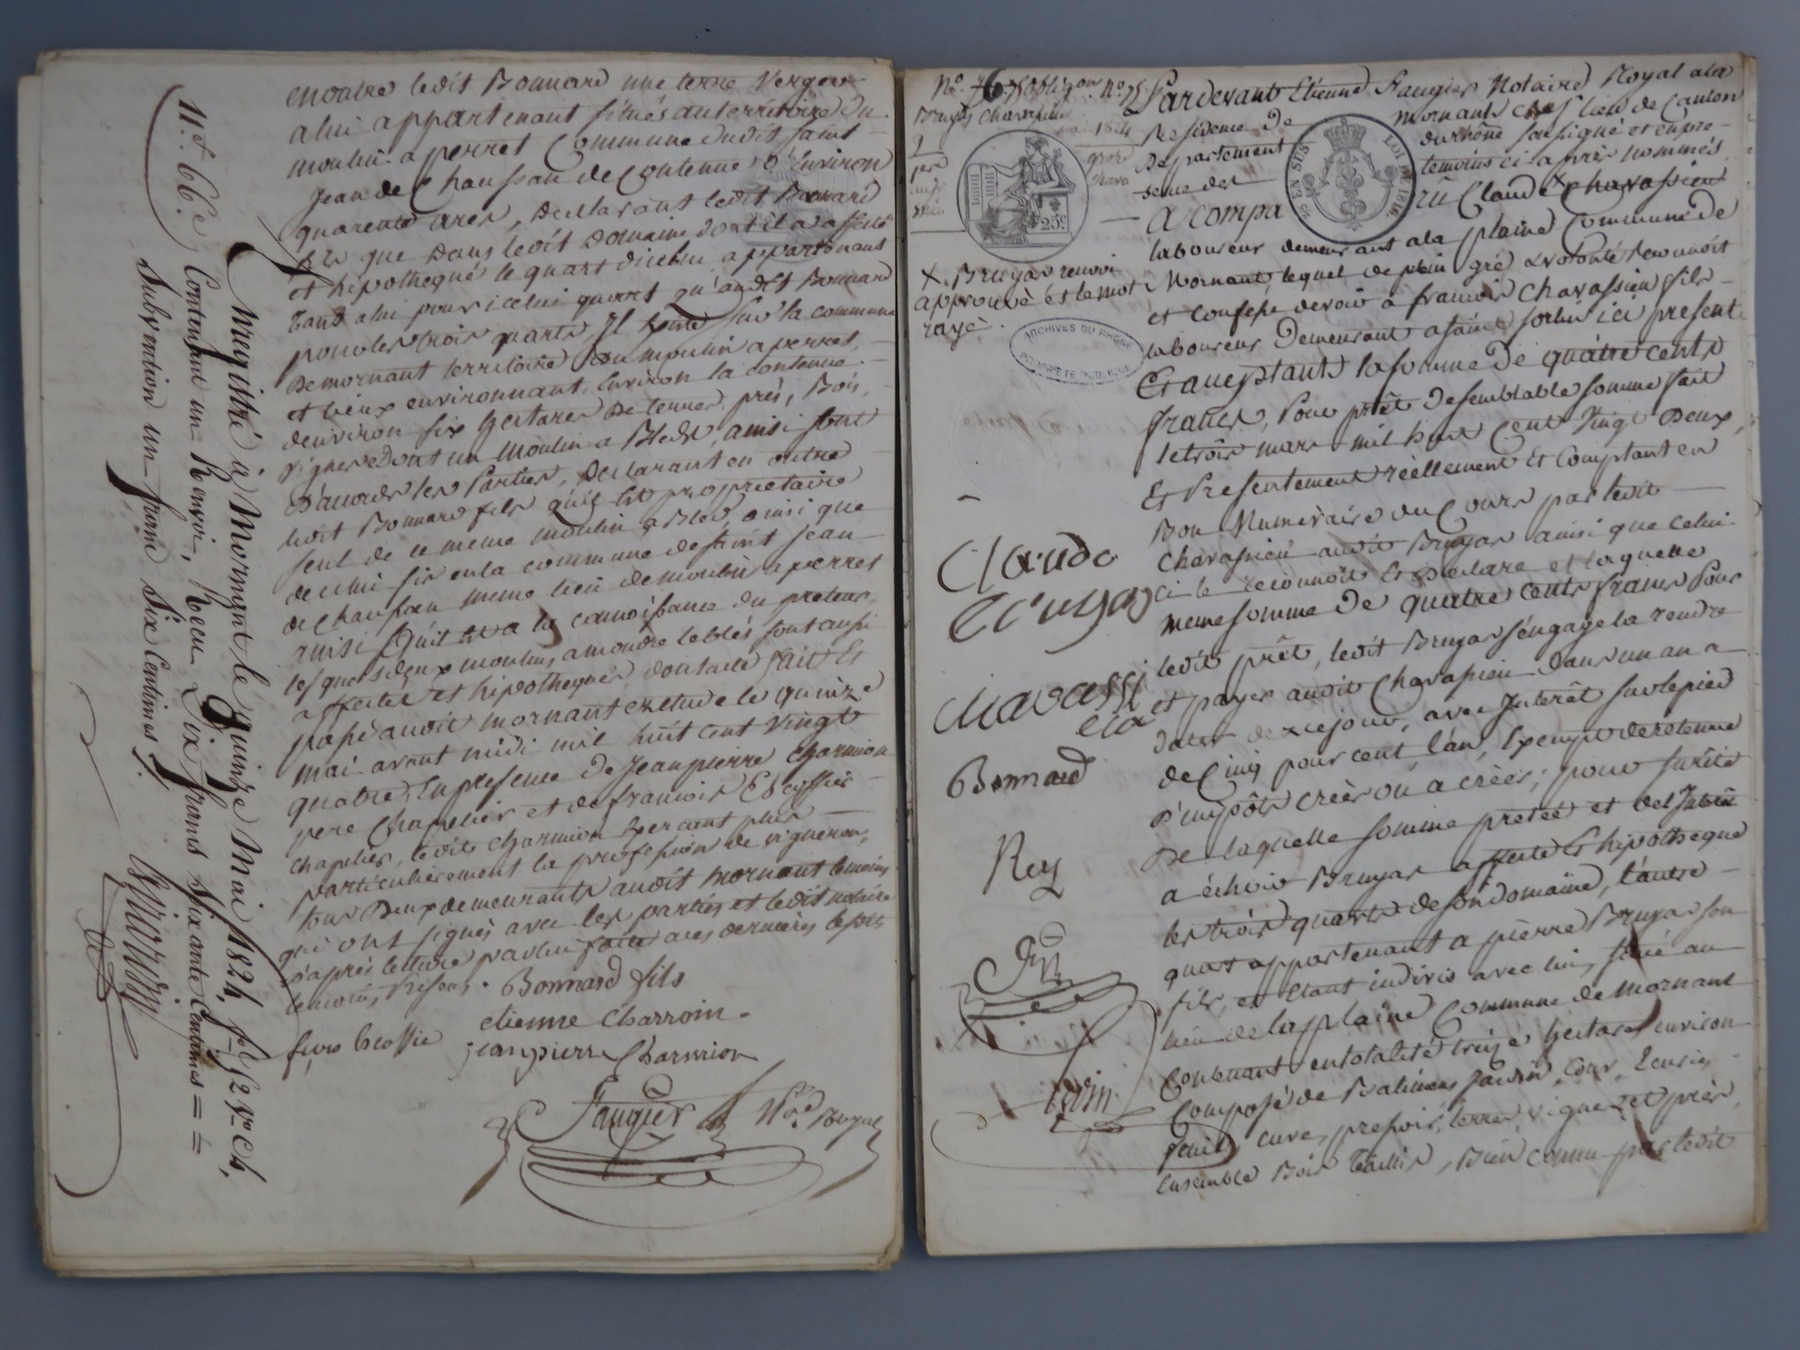 enoutre ledit Bonnard une terre Verger
a lui appartenant située au territoire du
moulin a perret Commune dudit saint
Jean de Chaussan de Contenue d'Environ
quarente ares, declarant ledit Bonnard
que dans ledit domaine dont il a affecté
et hipothequé le quart
tant a lui pour icelui quart qu'audit Bonnard
pour les trois quarts, Il sur la commune
de mornant territoire du moulin a perret,
et lieux environnant, Environ la contenue
denviron six hectares de terres, prés, Bois,
Vignes dont un Moulin a Bled, ainsi sont
d'accord les Parties, declarant en outre
ledit Bonnard fils qu'il est proprietaire
seul de ce meme moulin a Bled, ainsi que
de celui sis en la commune de saint jean
de Chaussan meme lieu de moulin a perret
ainsi qu'il est a la connoissance du preteur,
lesquels deux moulins a moudre le bléd sont aussi
affectés et hipothequés dont acte fait et
passé audit mornant en etude le quinze
mai avant midi mil huit cent vingt
quatre, En presence de Jean pierre Charmion
pere Chapelier et de francois
Chapelier, ledit Charmion Exercant plus
particulièrement la profession de vigneron,
tous Deux demeurants audit mornant temoins
qui ont signés avec les parties et ledit notaire
d'après lecture par lui faite a ces dernières
Bonnard fils
etienne Charroin.
jean pierre Charmion
Faugier Nre Royal
11.et 66.e
Contenant un Renvoi, Reçu Six francs Soixante Centimes
Subvention un franc Six Centimes
Enregistré à Mornant le quinze Mai 1824, fo 52 Vo C 4,
No. 76 obligon.
1824
Pardevant Etienne Faugier Notaire Royal a la
Residence de mornant chef lieu de Canton
Departement du Rhône soussigné et en pre-
sence des temoins ci après nommés
EN SUS
LOI 1816
25c
A Compa ru Claude x chavassieu
laboureur demeurant a la plaine Commune de
Mornant, lequel de plein gré & volonté reconnoit
et confesse devoir a francois Chavassieu fils
laboureur Demeurant a saint sorlin ici present
Et acceptant la somme De quatre cents
francs, Pour prêt de semblable somme fait
le trois mars mil huit Cent Vingt Deux,
Et Presentement réellement Et Comptant en
Bon Numeraire du Cours par ledit
Chavassieu audit Bruyas ainsi que celui
ci le reconnoit Et Declare et laquelle
meme somme de quatre cents francs Pour
ledit prêt, ledit Bruyas s'engage la rendre
et payer audit Chavassieu dans un an a
dater de ce jour, avec Interêt sur le pied
de Cinq pour cent l'an, Exempt de retenue
d'impôts créés ou a créer; pour sureté
De laquelle somme pretée et del Interêt
a échoir Bruyas affecte Et hipotheque
les trois quarts de son domaine, l'autre
quart appartenant a pierre Bruyas son
fils, et Etant indivis avec lui, situé au
lieu de la plaine Commune de Mornant
Contenant en totalité treize hectares environ
Composé de Batimens Jardin, Cour, Ecuries
fenil, cuve, pressoir, terres, vignes et prés,
Ensemble Bois taillis, Bien connu par ledit
X. Bruyas renvoi
approuvé et le mot
rayé.
ARCHIVES DU RHONE
PROPRIETE PUBLIQUE
Claude
Bruyas
chavassi
eu
Bonnard
Rey